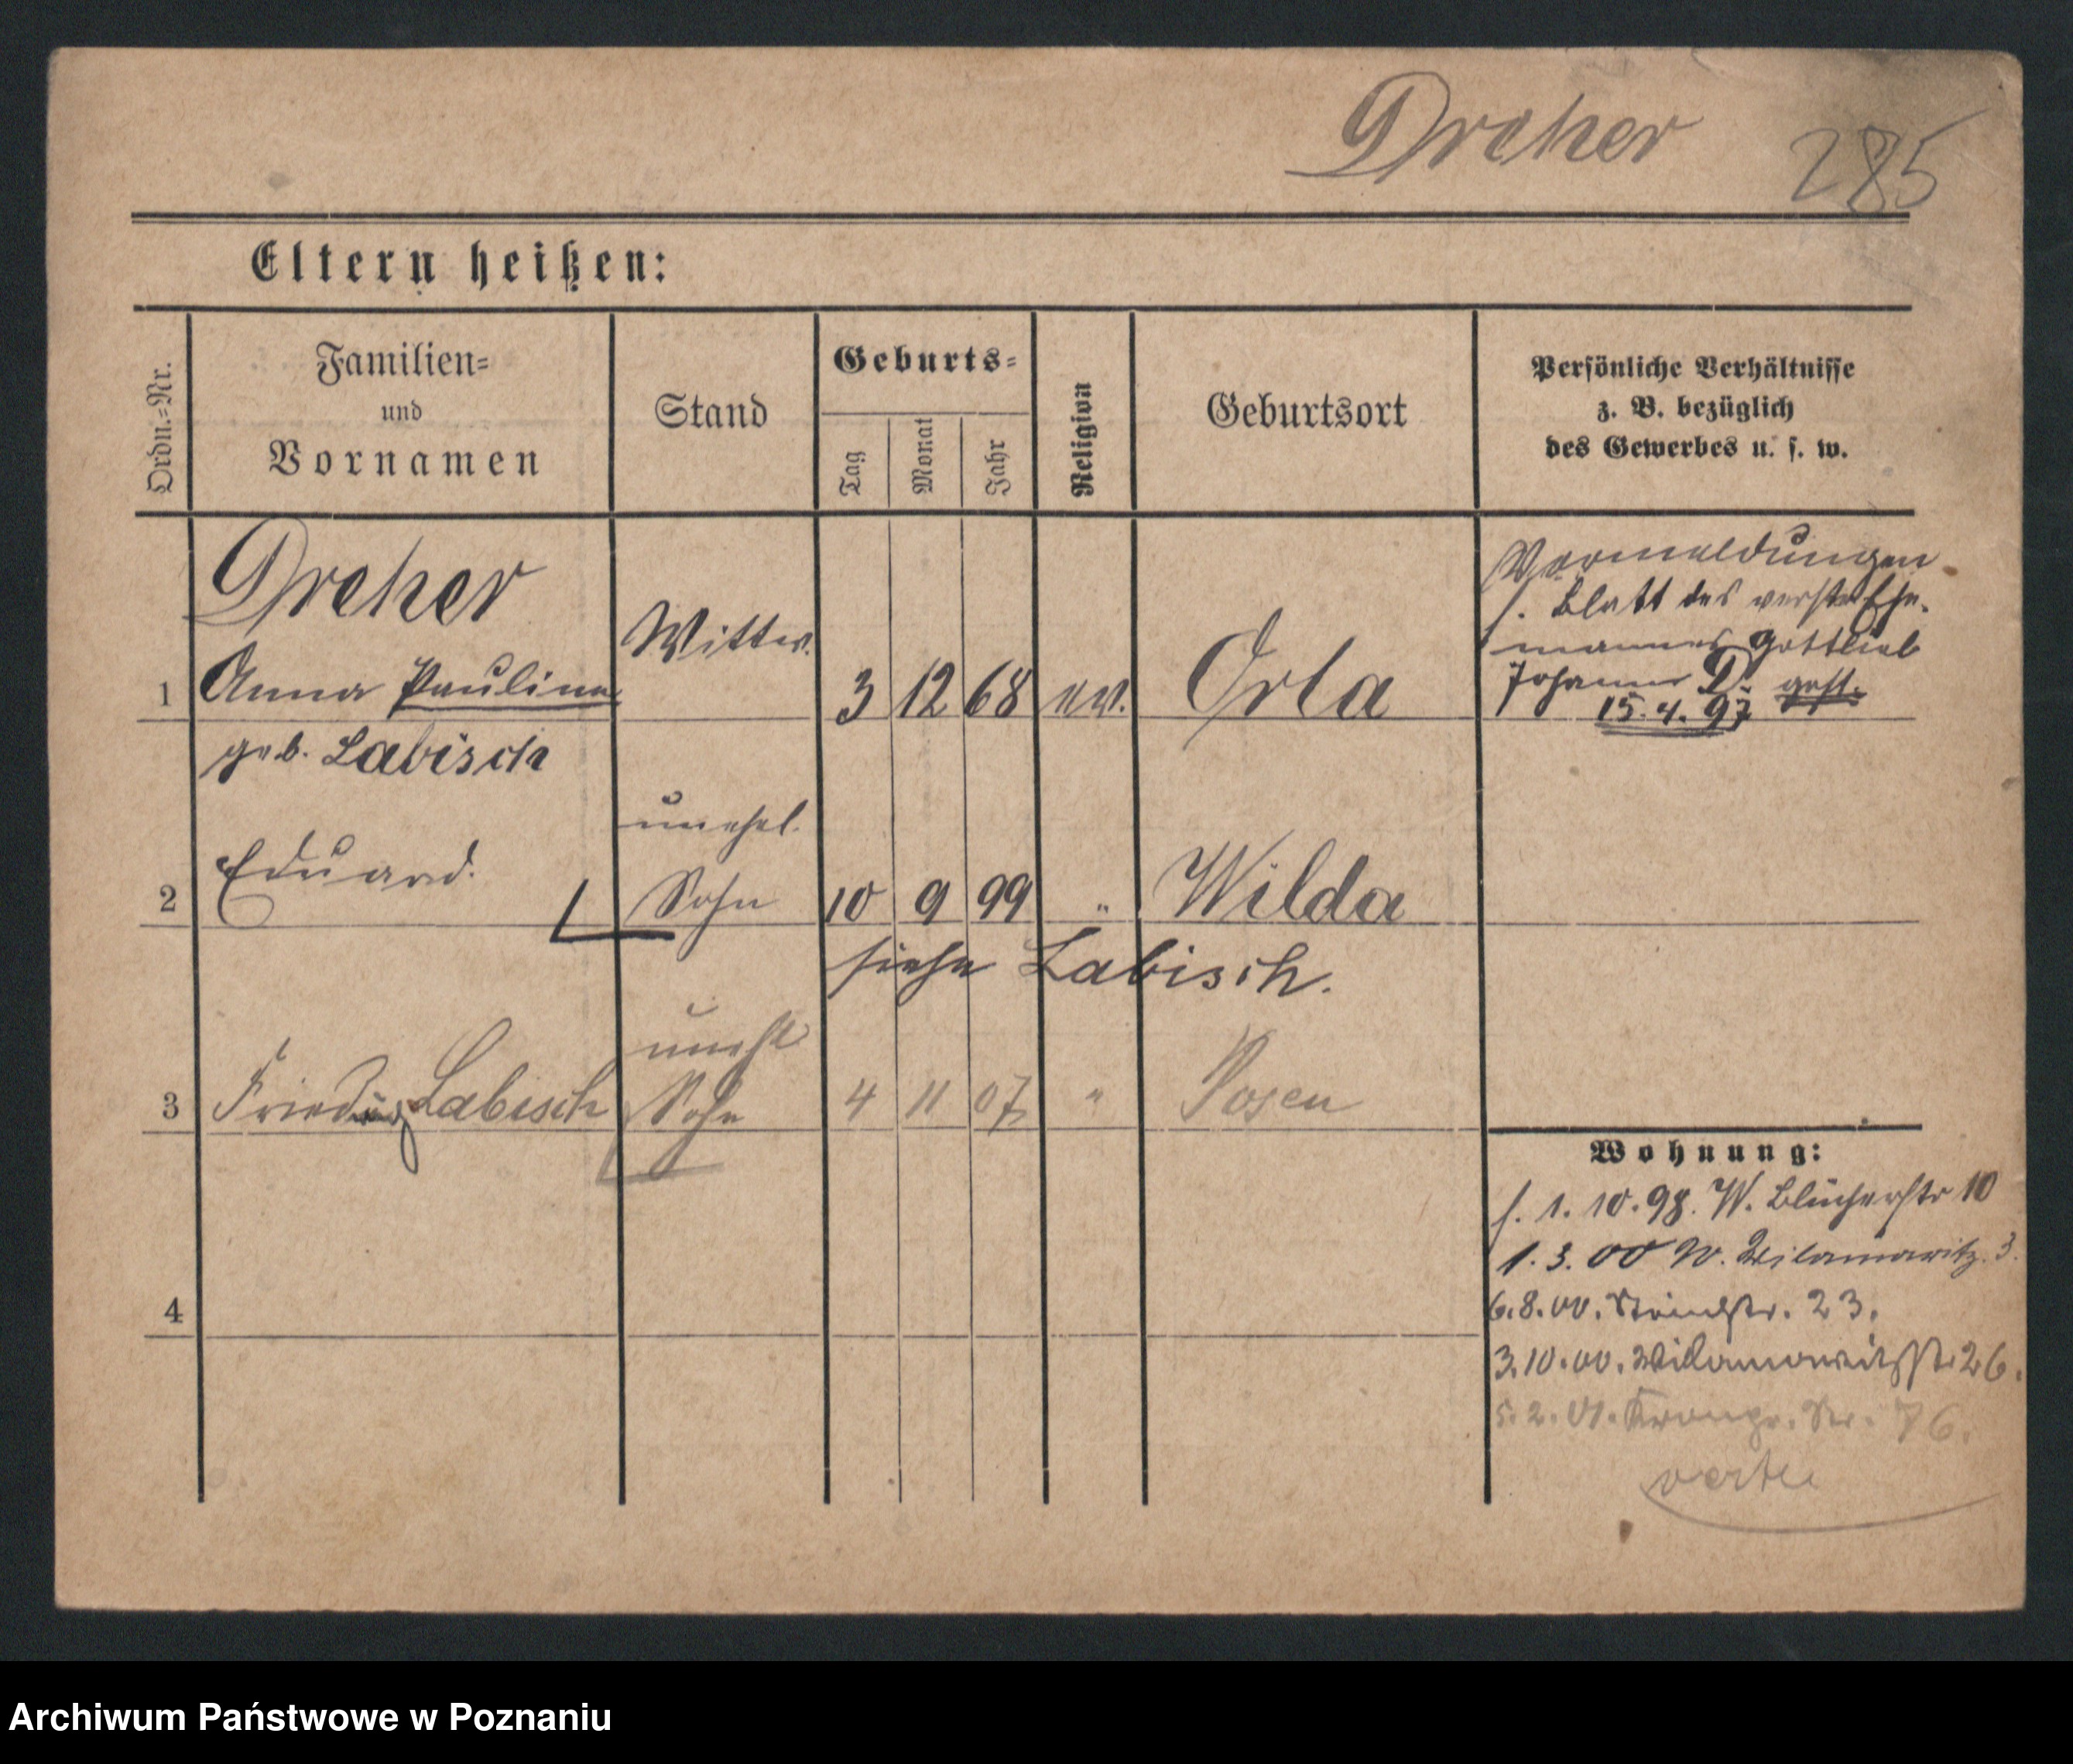 Dreher 285
Eltern heißen:
Ordn.-Nr.
Familien-
und
Vornamen
Stand
Geburts-
Tag
Monat
Jahr
Religion
Geburtsort
Persönliche Verhältnisse
z. B. bezüglich
des Gewerbes u. s. w.
Dreher
1 Anna Pauline Wittw. 3 12 68 ev. Orla
geb. Labisch
Vormeldungen
s. Blatt des verst. Ehe-
mannes Gottlieb
Johann D. gest.
15.4.97
unehel.
2 Eduard. Sohn 10 9 99 " Wilda
siehe Labisch.
unehl
3 Friedrich Labisch Sohn 4 11 07 " Posen
4
Wohnung:
s. 1. 10. 98. W. Blücherstr 10
1. 3. 00 W. Wilamowitz. 3.
6.8.00. 23.
3.10.00. Wilamowitzstr. 26.
5. 2. 01. Kronpr. Str. 76.
verte
Archiwum Państwowe w Poznaniu